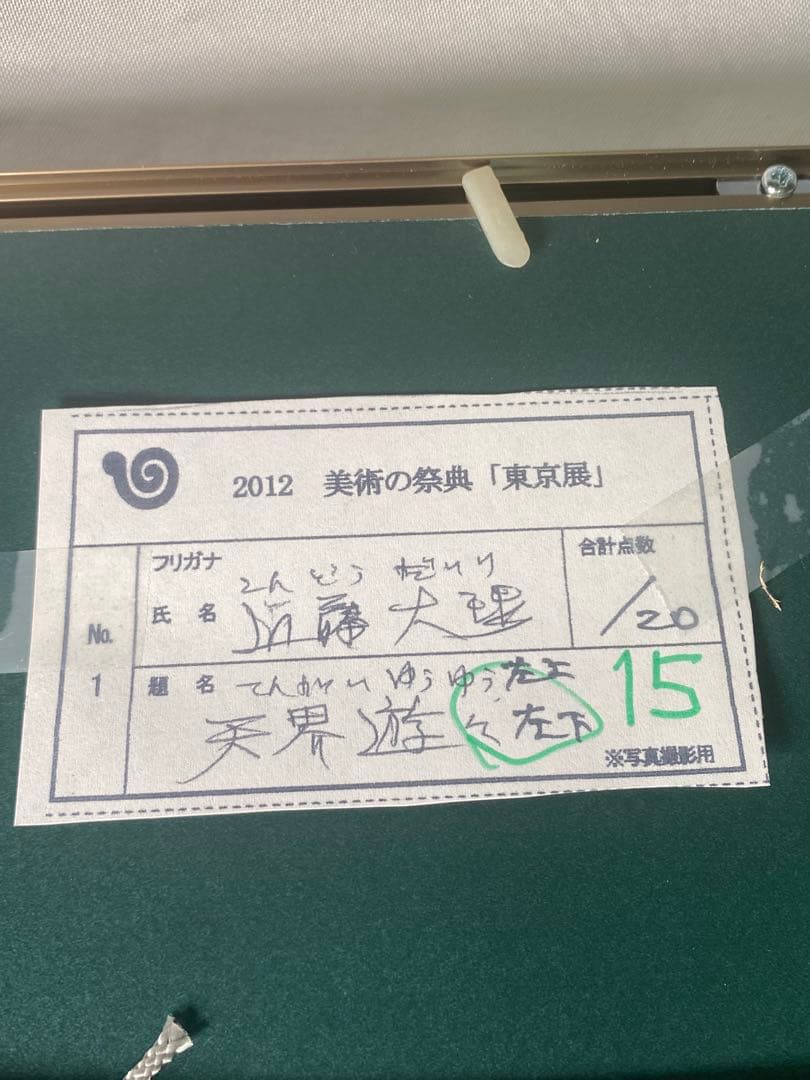 2012 美術の祭典「東京展」
No.
1
フリガナ
こんどう だいり
氏名
近藤 大理
合計点数
/20
題名
てんかい ゆうゆう
天界遊々
左上
左下
15
※写真撮影用